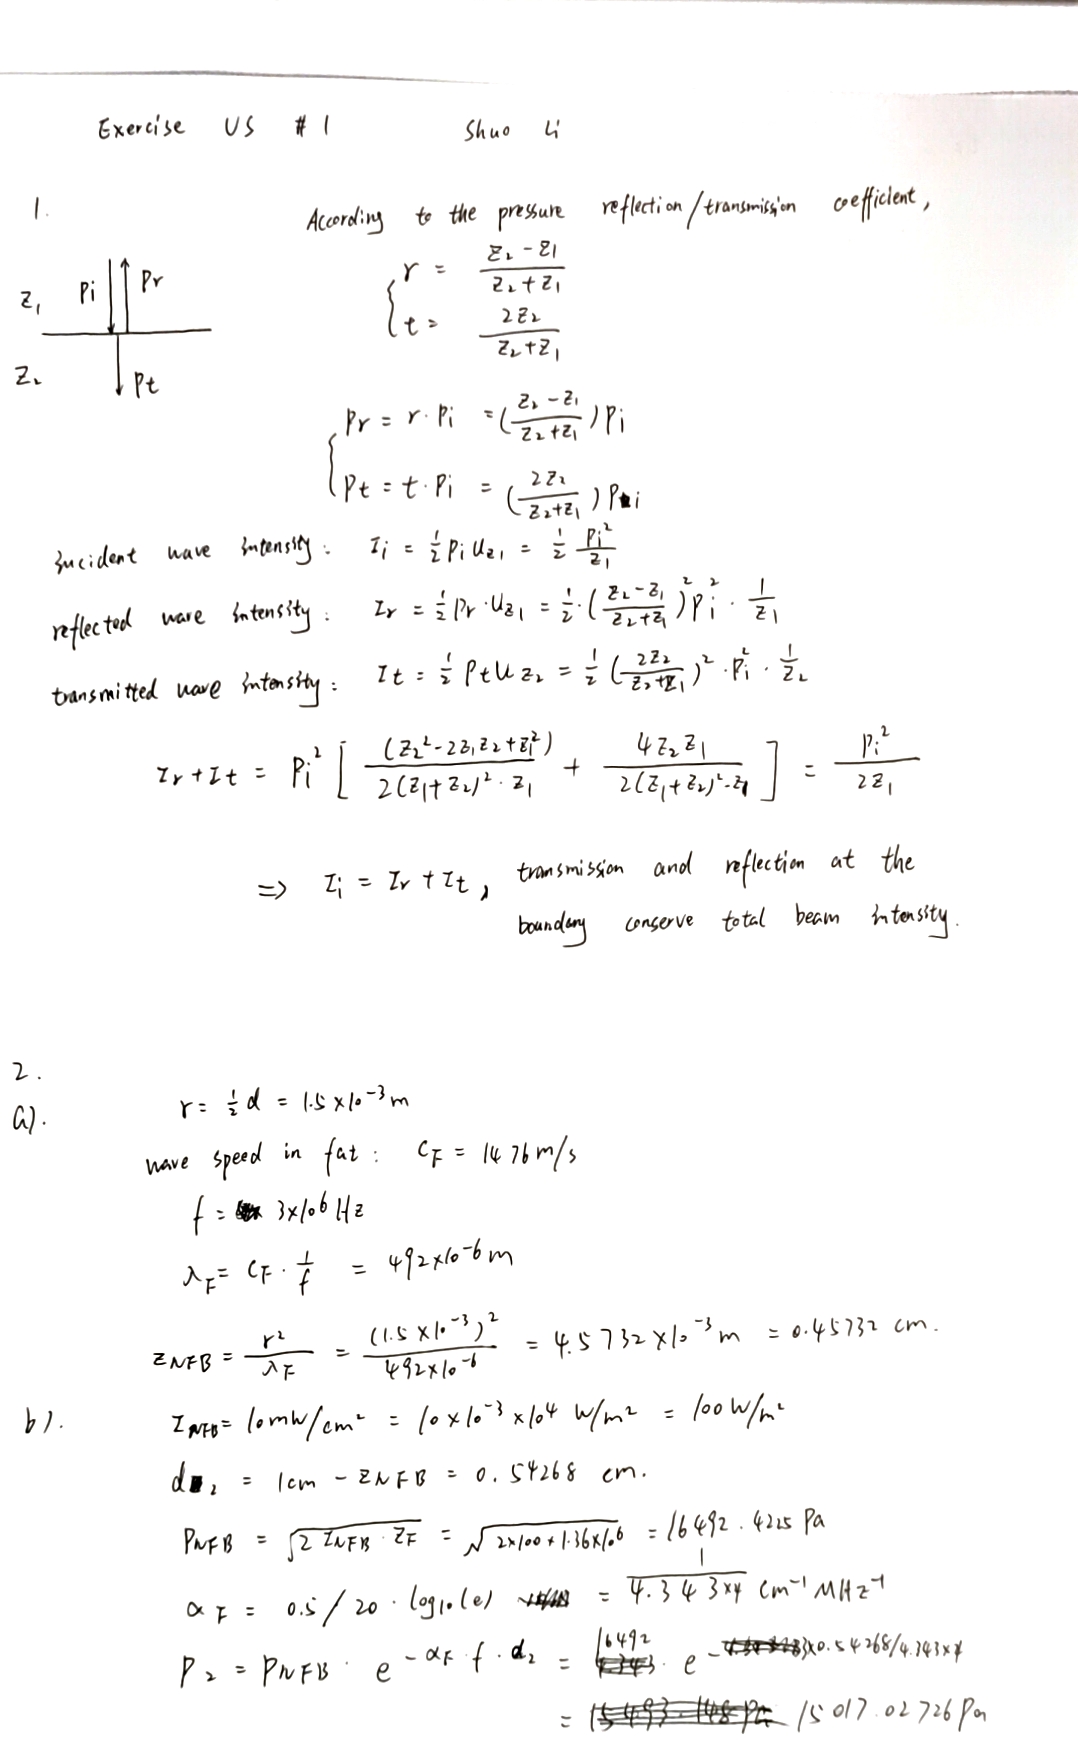 Exercise US #1 Shuo Li
1.
According to the pressure reflection/transmission coefficient,
r = (Z₂ - Z₁)/(Z₂ + Z₁)
Z₁ Pi Pr
t = 2Z₂/(Z₂ + Z₁)
Z₂ Pt
Pr = r · Pi = ((Z₂ - Z₁)/(Z₂ + Z₁)) Pi
Pt = t · Pi = (2Z₂/(Z₂ + Z₁)) Pi
incident wave intensity: Ii = ½ Pi Uz₁ = ½ Pi²/Z₁
reflected wave intensity: Ir = ½ Pr · Uz₁ = ½ · ((Z₂ - Z₁)/(Z₂ + Z₁))² Pi² · 1/Z₁
transmitted wave intensity: It = ½ Pt Uz₂ = ½ (2Z₂/(Z₂ + Z₁))² · Pi² · 1/Z₂
Ir + It = Pi² [ (Z₂² - 2Z₁Z₂ + Z₁²)/(2(Z₁ + Z₂)² · Z₁) + 4Z₂Z₁/(2(Z₁ + Z₂)² · Z₁) ] = Pi²/(2Z₁)
⇒ Ii = Ir + It, transmission and reflection at the
boundary conserve total beam intensity.
2.
a). r = ½ d = 1.5 × 10⁻³ m
wave speed in fat: C_F = 1476 m/s
f = 3×10⁶ Hz
λ_F = C_F · 1/f = 492×10⁻⁶ m
Z_NFB = r²/λ_F = (1.5 × 10⁻³)²/(492×10⁻⁶) = 4.5732 × 10⁻³ m = 0.45732 cm.
b). I_NFB = 10mW/cm² = 10 × 10⁻³ × 10⁴ W/m² = 100 W/m²
d₂ = 1cm - Z_NFB = 0.54268 cm.
P_NFB = √(2 I_NFB · Z_F) = √(2×100 × 1.36×10⁶) = 16492.4225 Pa
α_F = 0.5/20 · log₁₀(e) = 1/(4.343×4) cm⁻¹ MHz⁻¹
P₂ = P_NFB · e^(-α_F · f · d₂) = 16492 · e^(-3×0.54268/4.343×4)
= 15017.02726 Pa